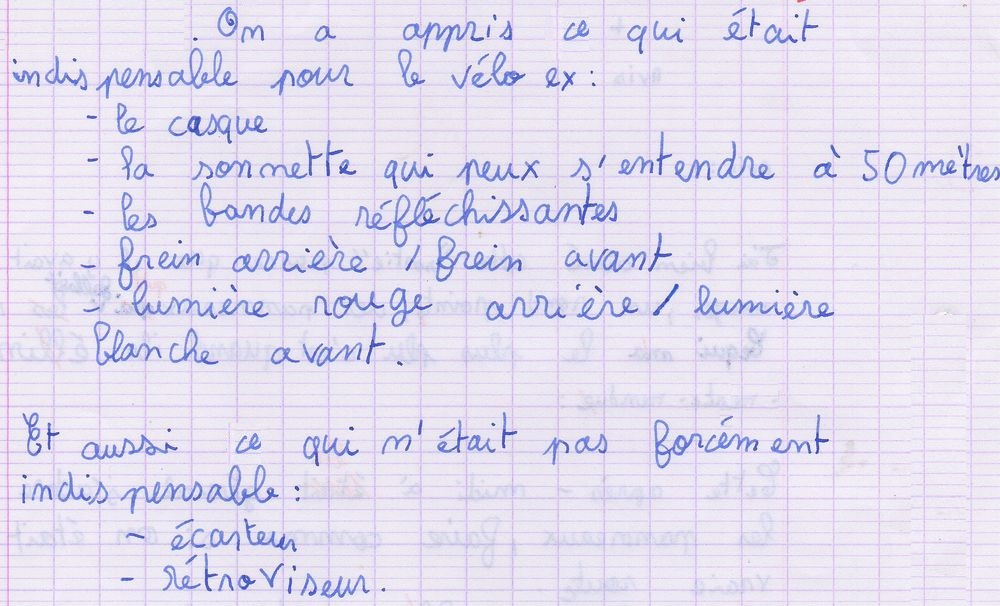 . On a appris ce qui était
indispensable pour le vélo ex :
- le casque
- la sonnette qui peux s'entendre à 50 mètres
- les bandes réfléchissantes
- frein arrière / frein avant
- lumière rouge arrière / lumière
blanche avant.
Et aussi ce qui n'était pas forcément
indispensable :
- écarteur
- rétroviseur.